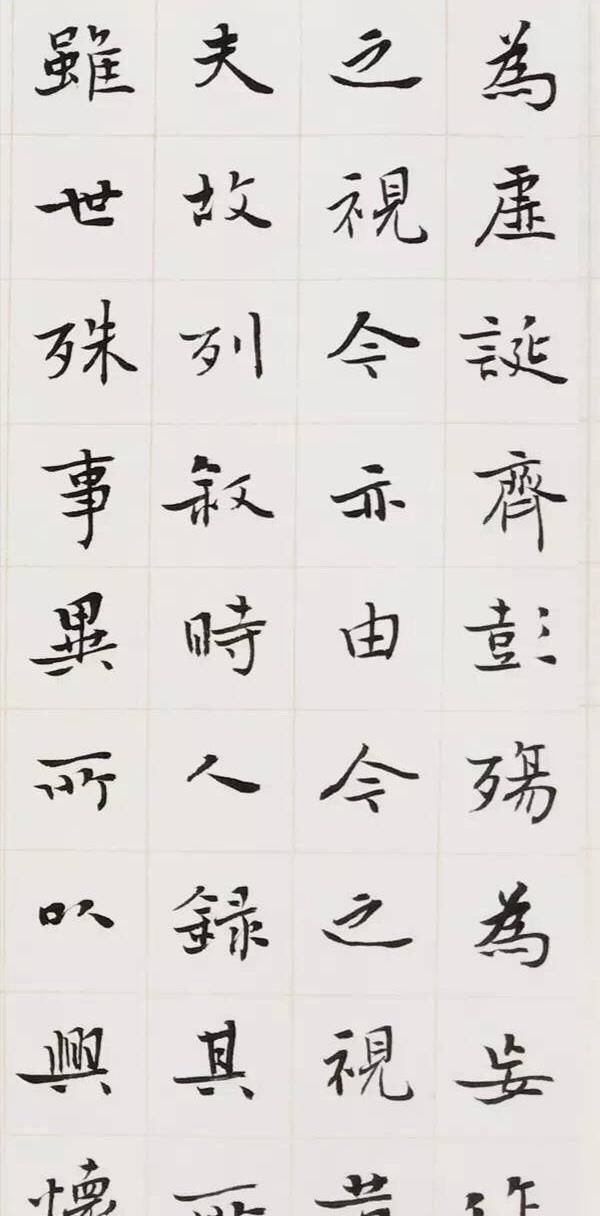 為虛誕齊彭殤為妄作
之視今亦由今之視昔
夫故列叙時人録其所
雖世殊事異所以興懷